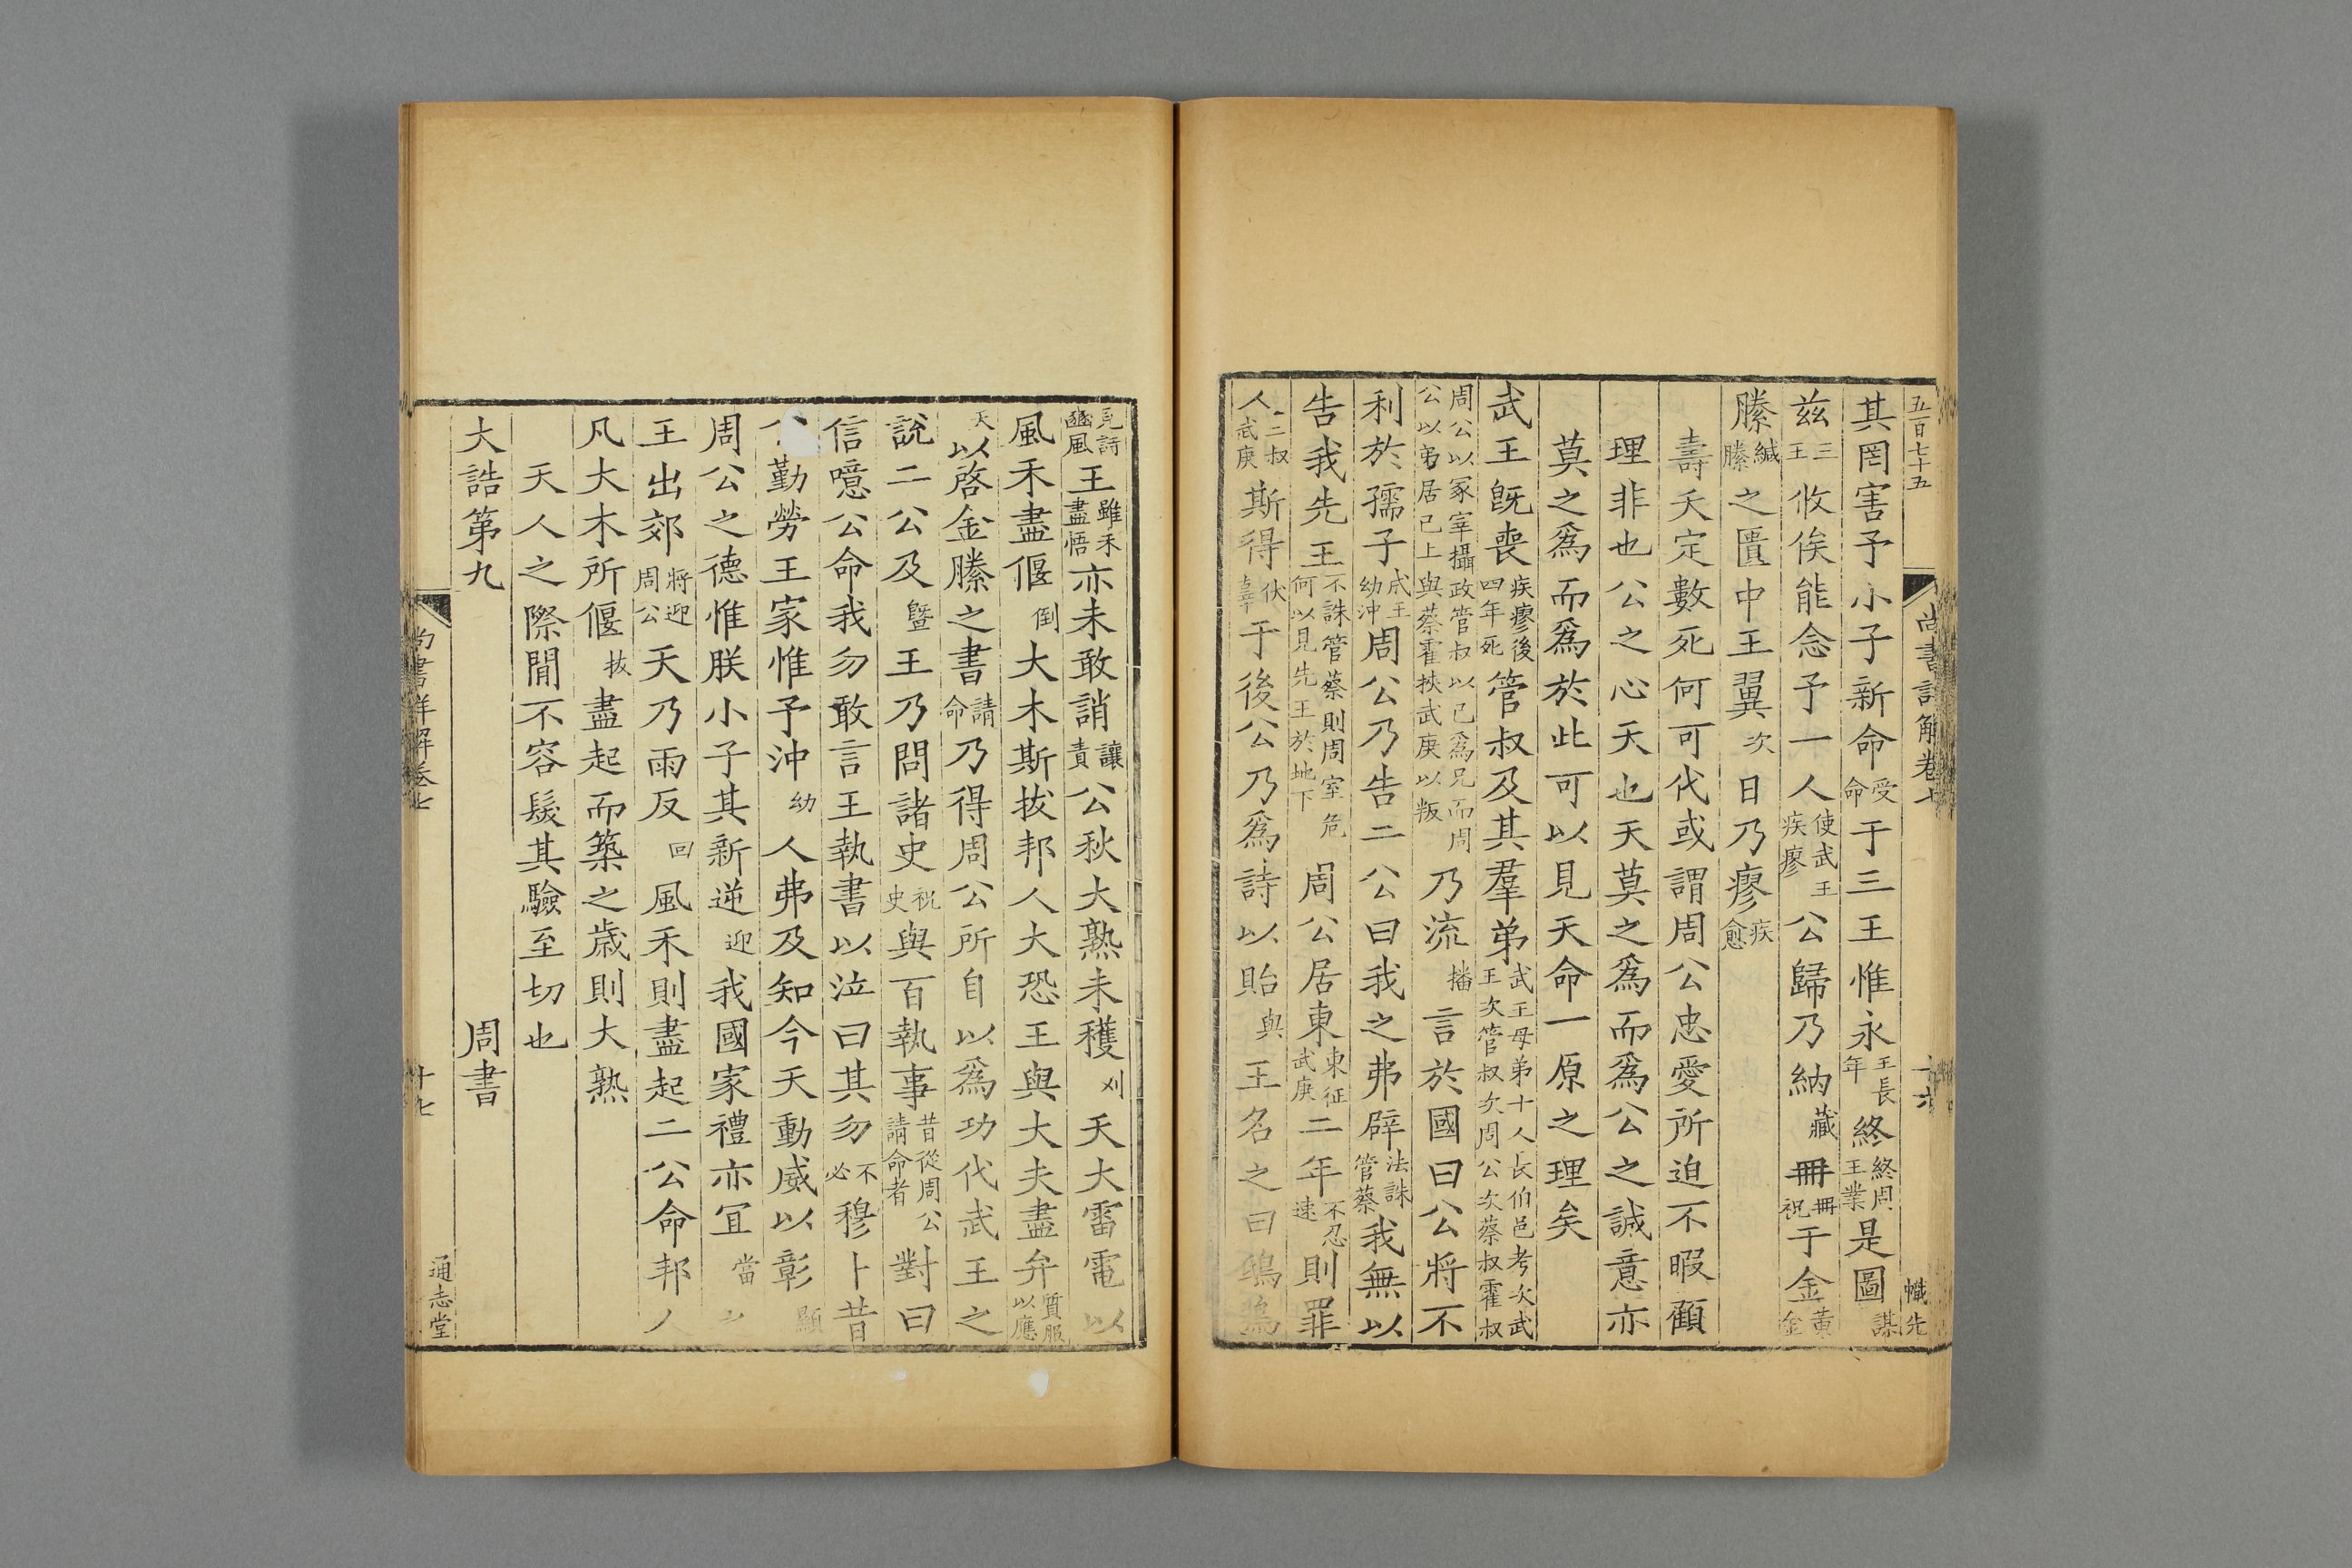 五百七十五
尚書詳解卷七
十六
幟先
其罔害予小子新命受命于三王惟永王長年終終周王業是圖謀
茲三王攸俟能念予一人使武王疾瘳公歸乃納藏冊冊祝于金黃金
縢緘縢之匱中王翼次日乃瘳疾愈
壽夭定數死何可代或謂周公忠愛所迫不暇顧
理非也公之心天也天莫之為而為公之誠意亦
莫之為而為於此可以見天命一原之理矣
武王旣喪疾瘳後四年死管叔及其羣弟武王母弟十人長伯邑考次武王次管叔次周公次蔡叔霍叔
周公以冢宰攝政管叔以己為兄而周公以弟居己上與蔡霍挾武庚以叛乃流播言於國曰公將不
利於孺子成王幼沖周公乃告二公曰我之弗辟法誅管蔡我無以
告我先王不誅管蔡則周室危何以見先王於地下周公居東東征武庚二年不忍速則罪
人二叔武庚斯得伏辜于後公乃爲詩以貽與王名之曰鴟鴞
見詩豳風王雖未盡悟亦未敢誚讓責公秋大熟未穫刈天大雷電以
風禾盡偃倒大木斯拔邦人大恐王與大夫盡弁質服以應
天以啓金縢之書請命乃得周公所自以爲功代武王之
說二公及曁王乃問諸史祝史與百執事昔從周公請命者對曰
信噫公命我勿敢言王執書以泣曰其勿不必穆卜昔
勤勞王家惟予沖幼人弗及知今天動威以彰顯
周公之德惟朕小子其新逆迎我國家禮亦宜當
王出郊將迎周公天乃雨反回風禾則盡起二公命邦人
凡大木所偃拔盡起而築之歲則大熟
天人之際閒不容髮其驗至切也
大誥第九　周書
尚書詳解卷七
十七
通志堂